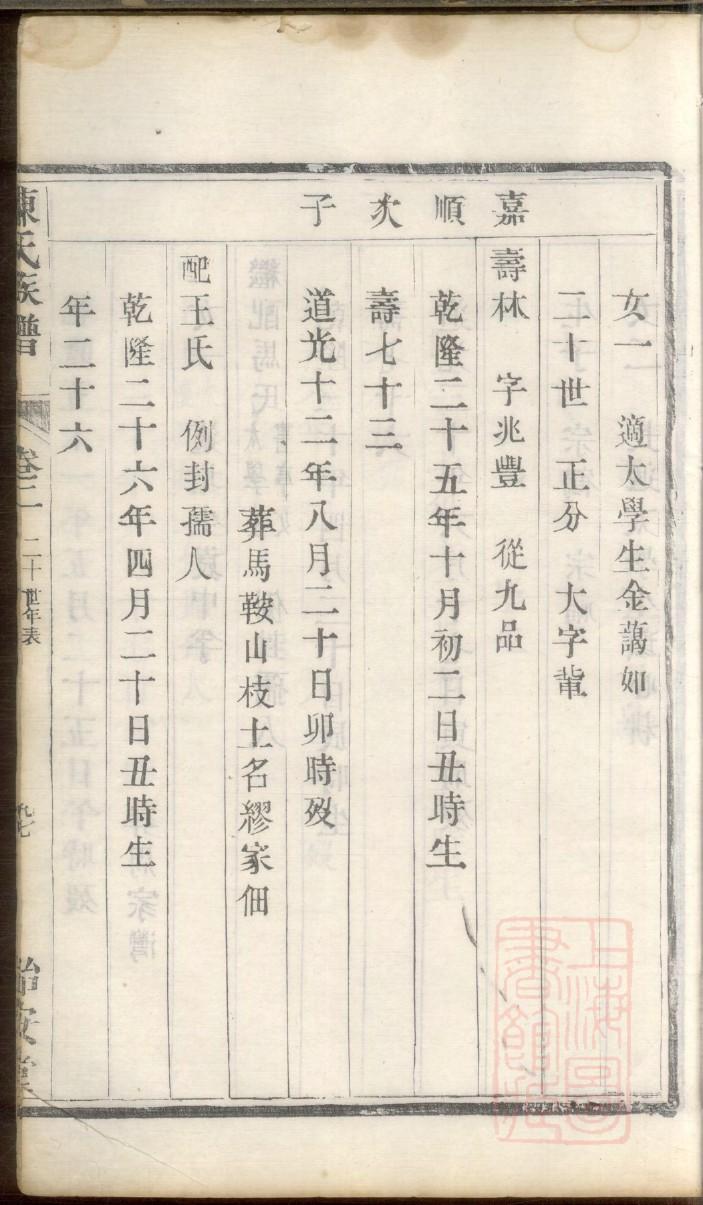 女一 適太學生金藹如
二十世 正分 大字輩
嘉順次子
壽林 字兆豐 從九品
乾隆二十五年十月初二日丑時生
壽七十三
道光十二年八月二十日卯時歿
葬馬鞍山枝土名繆家佃
配王氏 例封孺人
乾隆二十六年四月二十日丑時生
年二十六
陳氏族譜 卷二 二十世年表 九七
上海圖書館藏